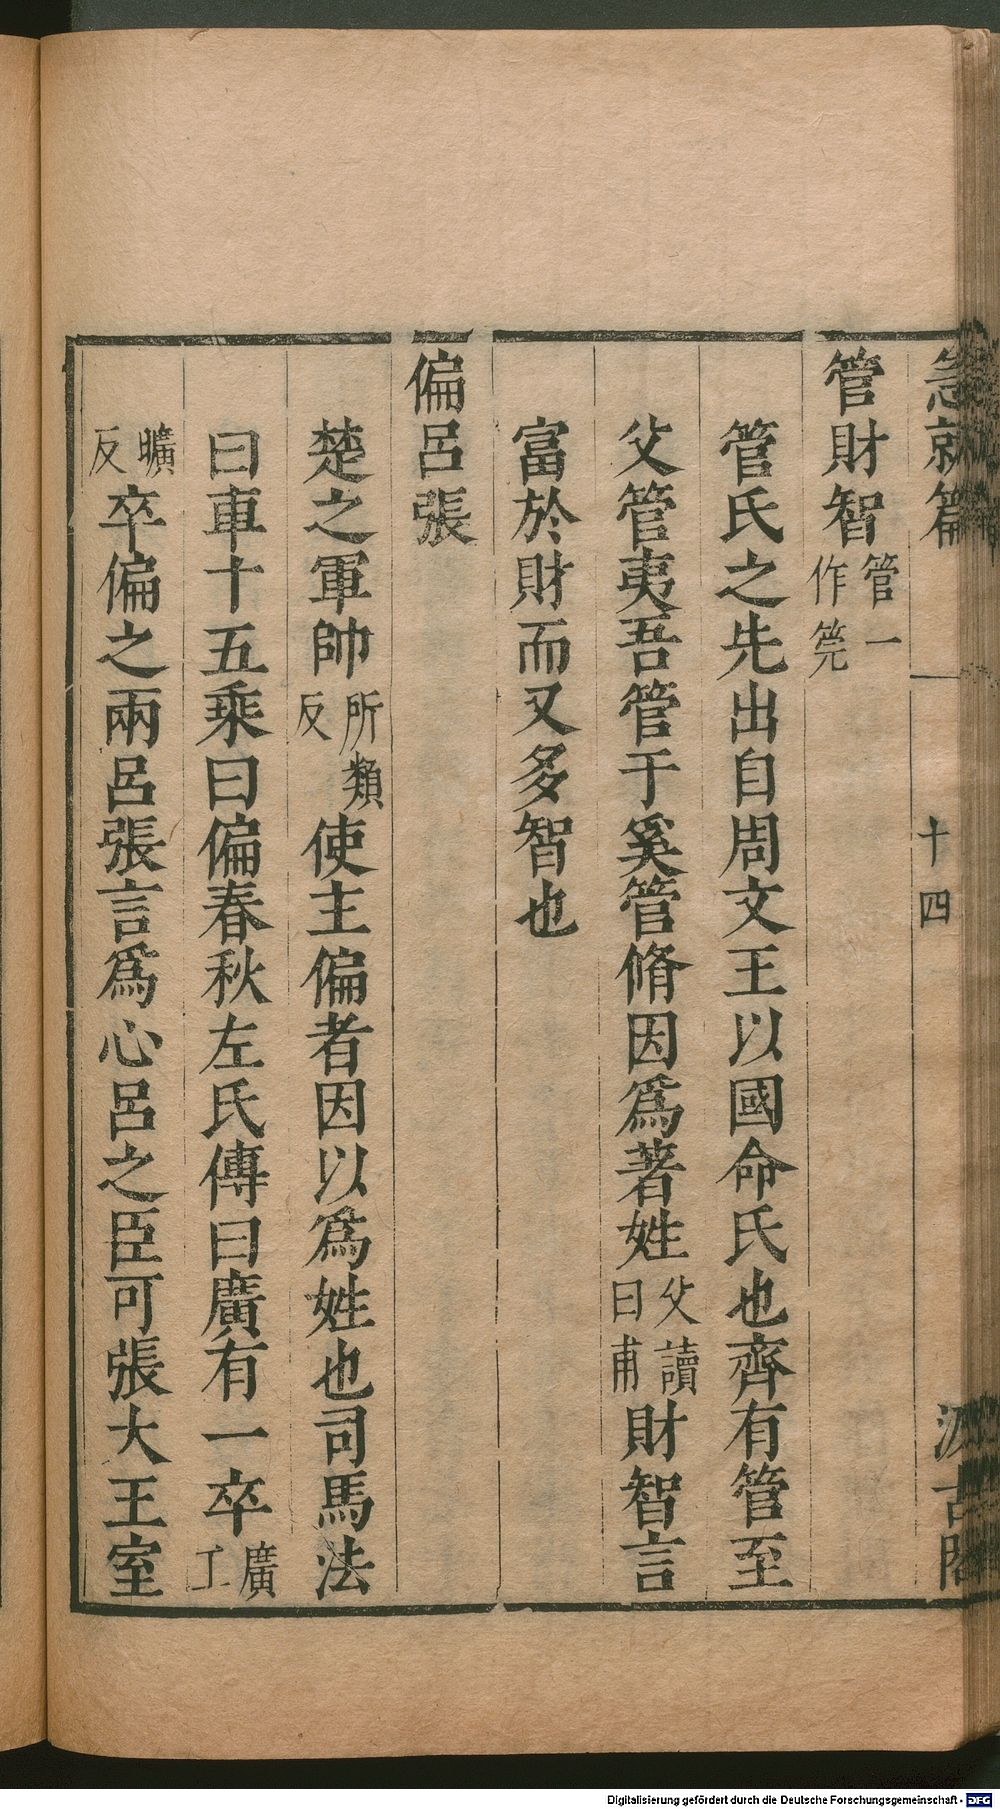 急就篇 十四 汲古閣
管財智管一作筦
管氏之先出自周文王以國命氏也齊有管至
父管夷吾管于奚管脩因爲著姓父讀曰甫財智言
富於財而又多智也
偏呂張
楚之軍帥所類反使主偏者因以爲姓也司馬法
曰車十五乘曰偏春秋左氏傳曰廣有一卒廣工
曠反卒偏之兩呂張言爲心呂之臣可張大王室
Digitalisierung gefördert durch die Deutsche Forschungsgemeinschaft - DFG